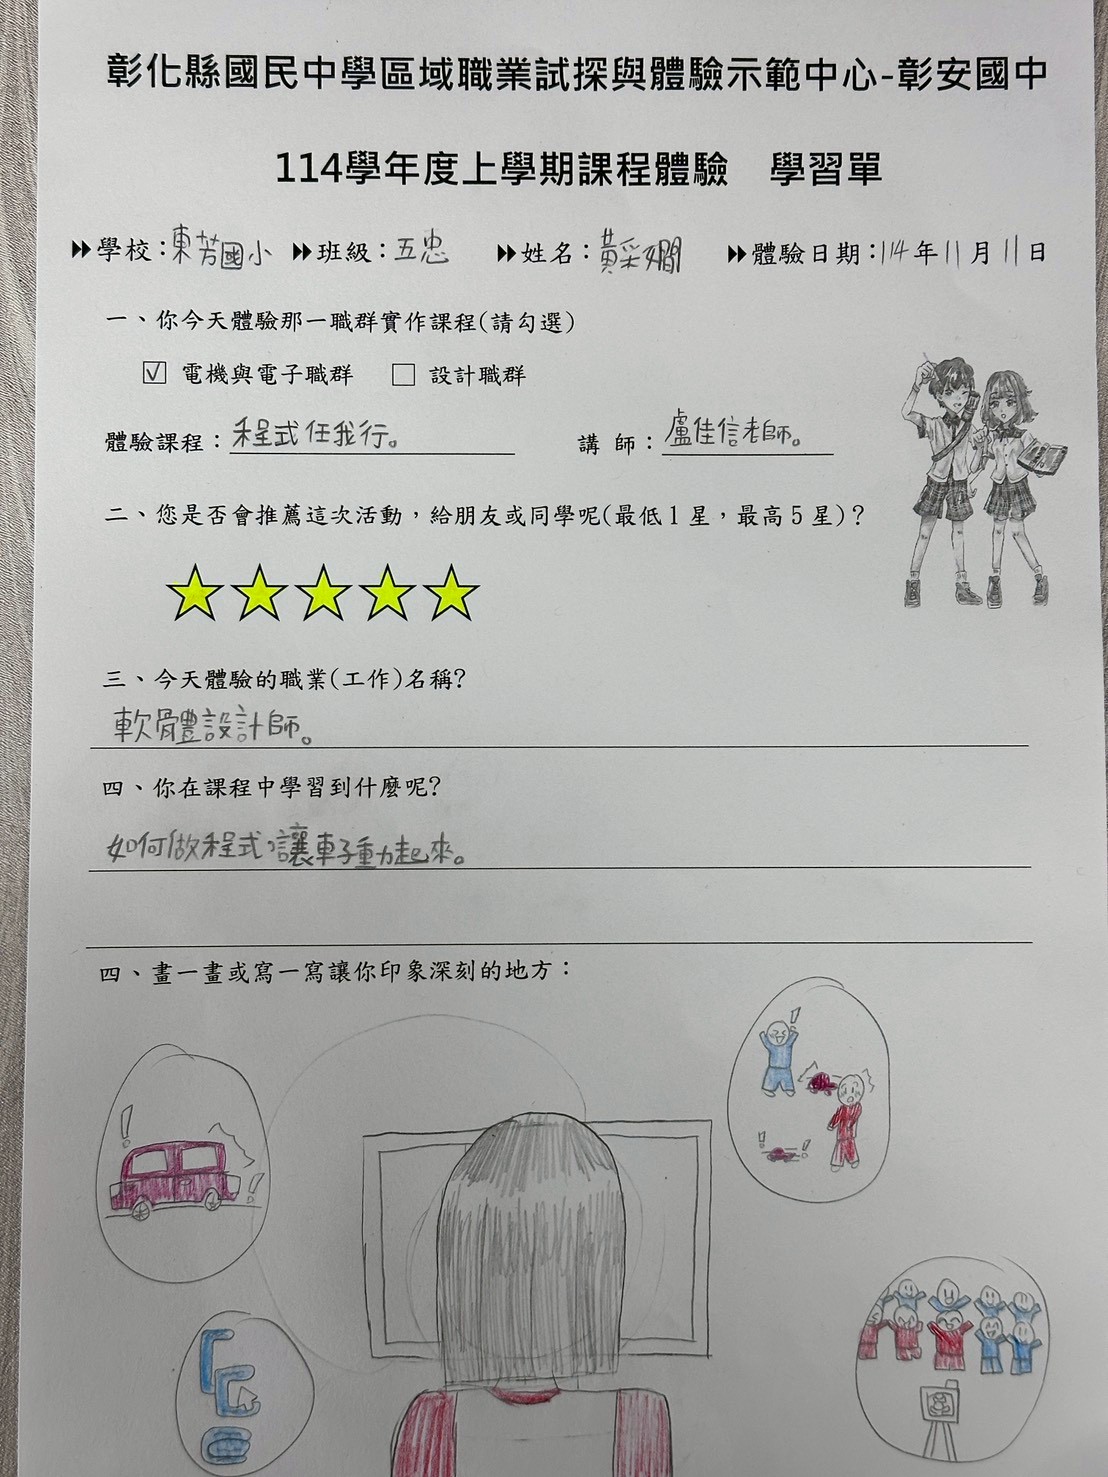 彰化縣國民中學區域職業試探與體驗示範中心-彰安國中
114學年度上學期課程體驗 學習單
學校：東芳國小 班級：五忠 姓名：黃采嫺 體驗日期：114年11月11日
一、你今天體驗那一職群實作課程(請勾選)
☑ 電機與電子職群 □ 設計職群
體驗課程：程式任我行。 講 師：盧佳信老師。
二、您是否會推薦這次活動，給朋友或同學呢(最低1星，最高5星)？
三、今天體驗的職業(工作)名稱?
軟體設計師。
四、你在課程中學習到什麼呢?
如何做程式，讓車子動起來。
四、畫一畫或寫一寫讓你印象深刻的地方：